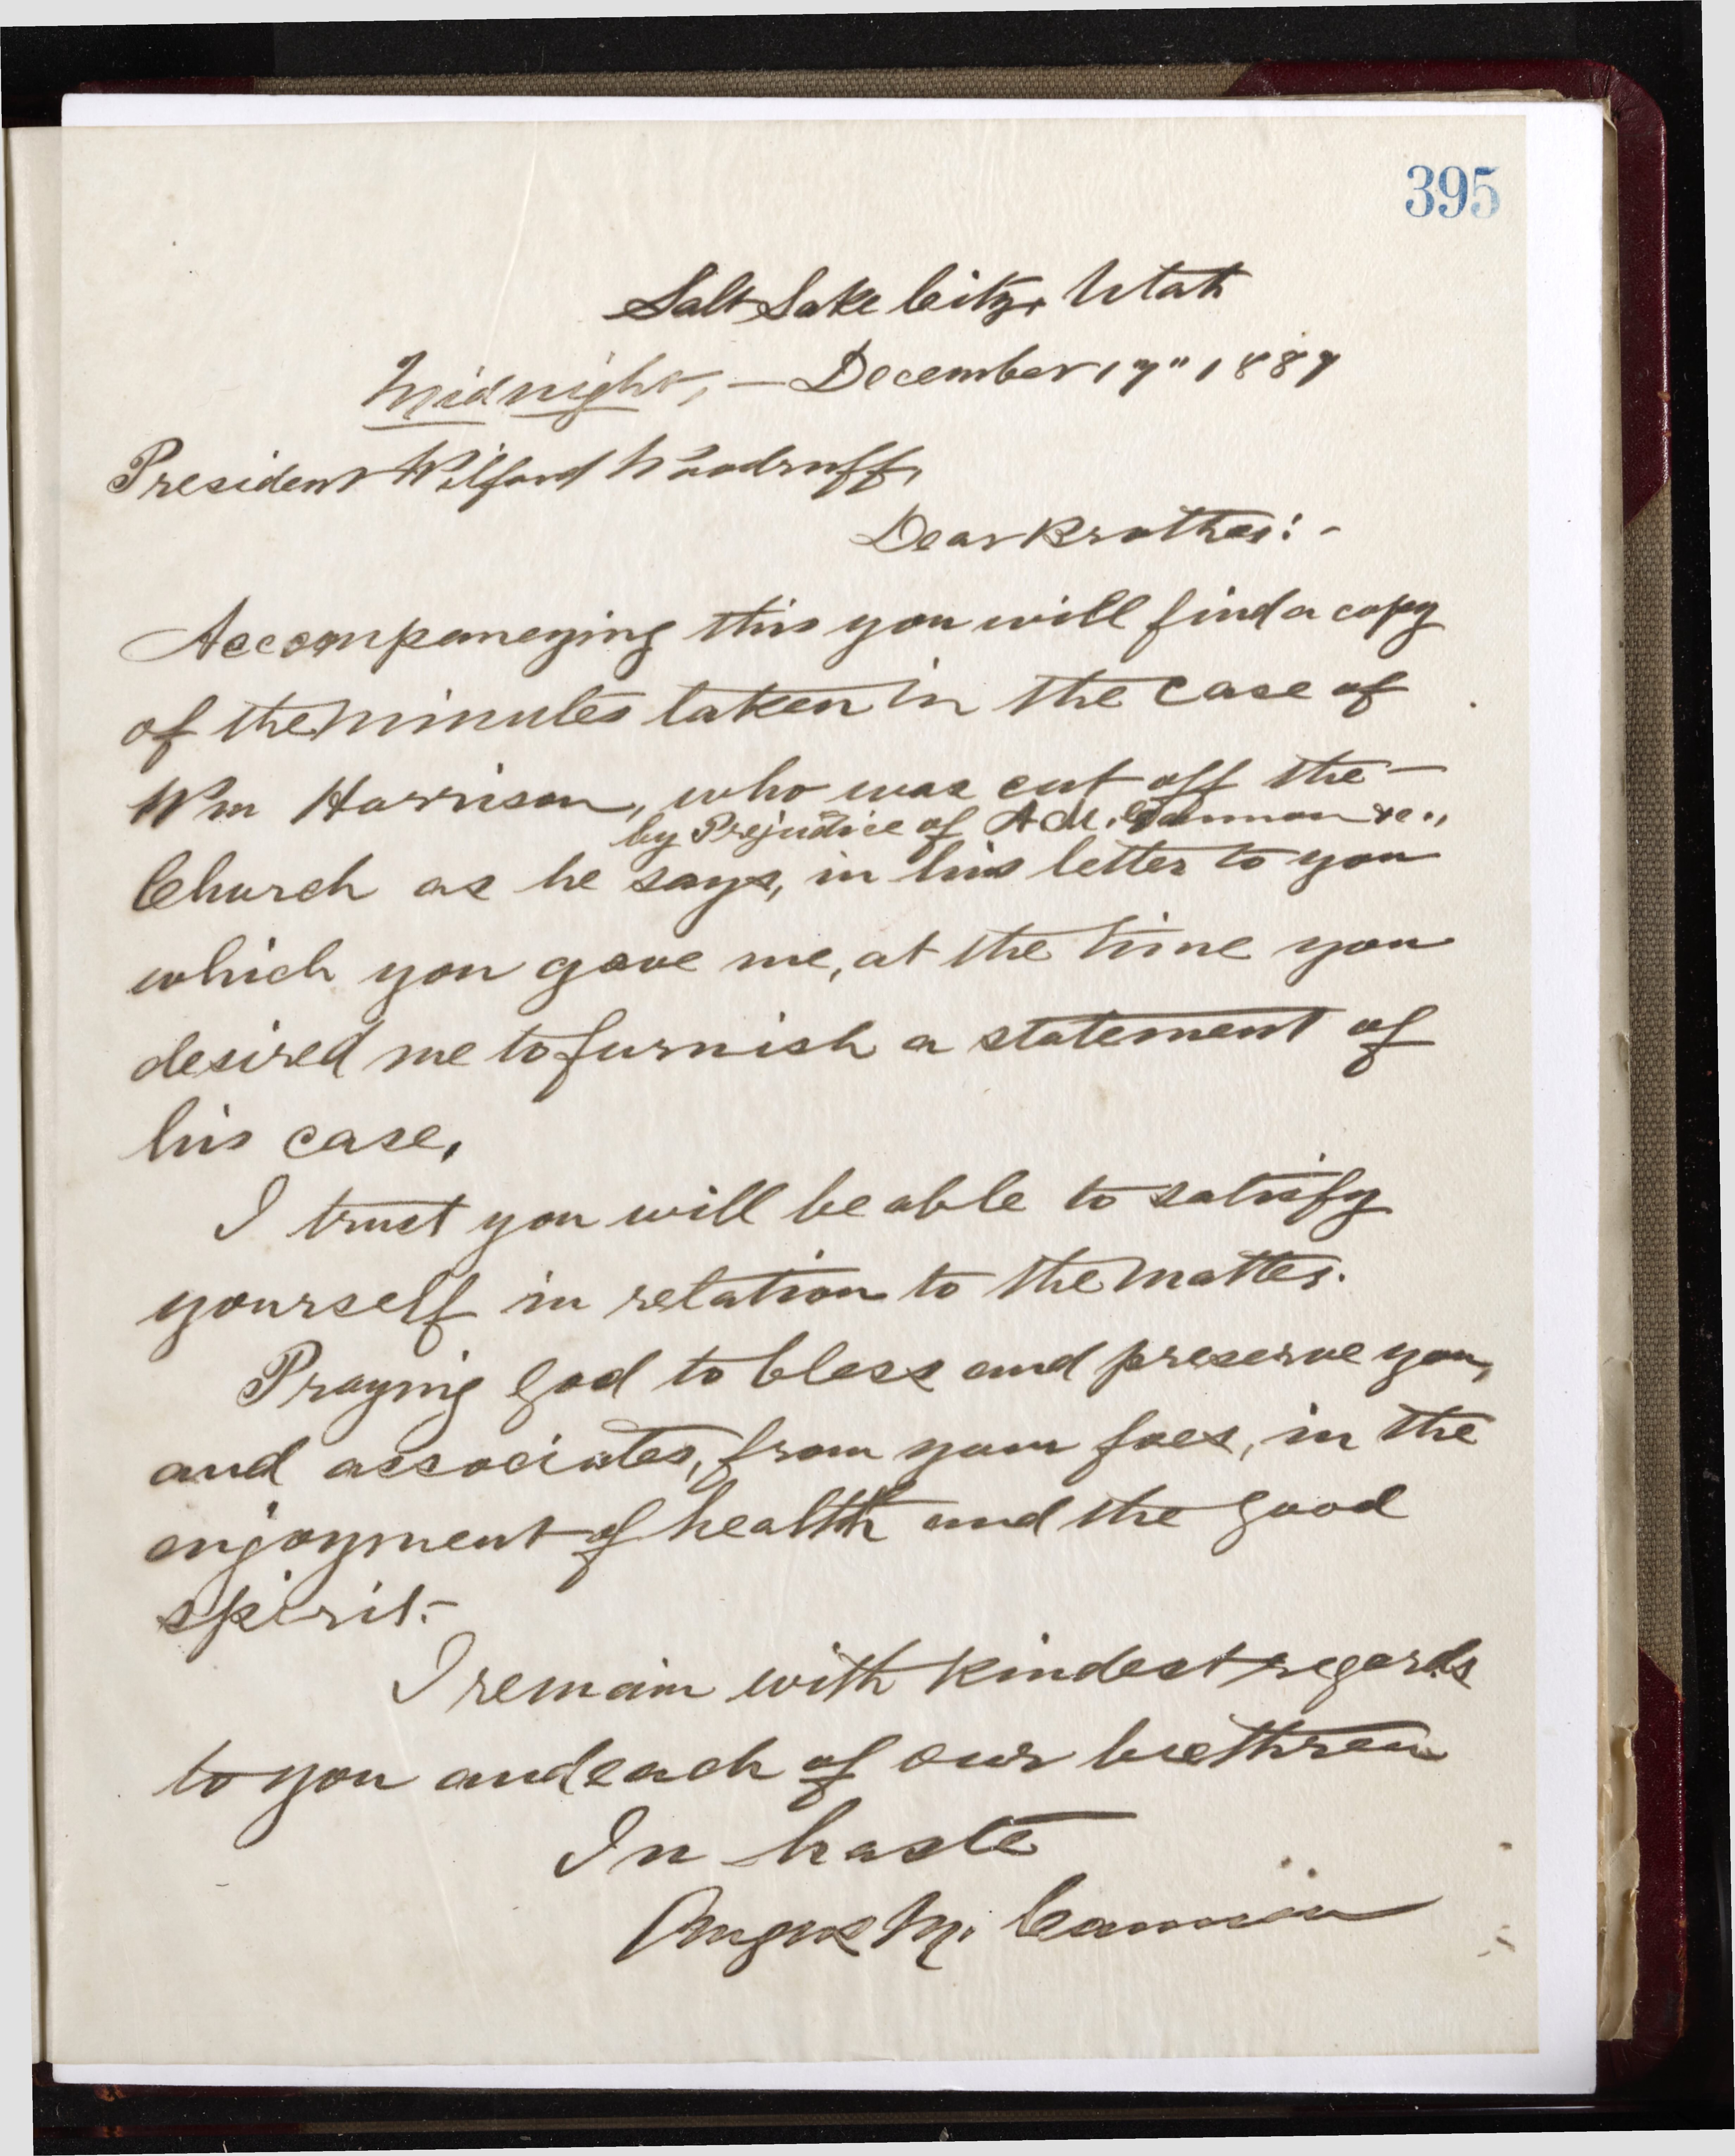 395
Salt Lake City, Utah
Midnight, — December 17" 1887
President Wilford Woodruff,
Dear Brother: -
Accompaneying this you will find a copy
of the minutes taken in the case of
Wm Harrison, who was cut off the —
by Prejudice of A M. Cannon &c.,
Church as he says, in his letter to you
which you gave me, at the time you
desired me to furnish a statement of
his case.
I trust you will be able to satisfy
yourself in relation to the matter.
Praying God to bless and preserve you,
and associates, from your foes, in the
enjoyment of health and the good
spirit. —
I remain with kindest regards
to you and each of our brethren
In haste
Angus M. Cannon